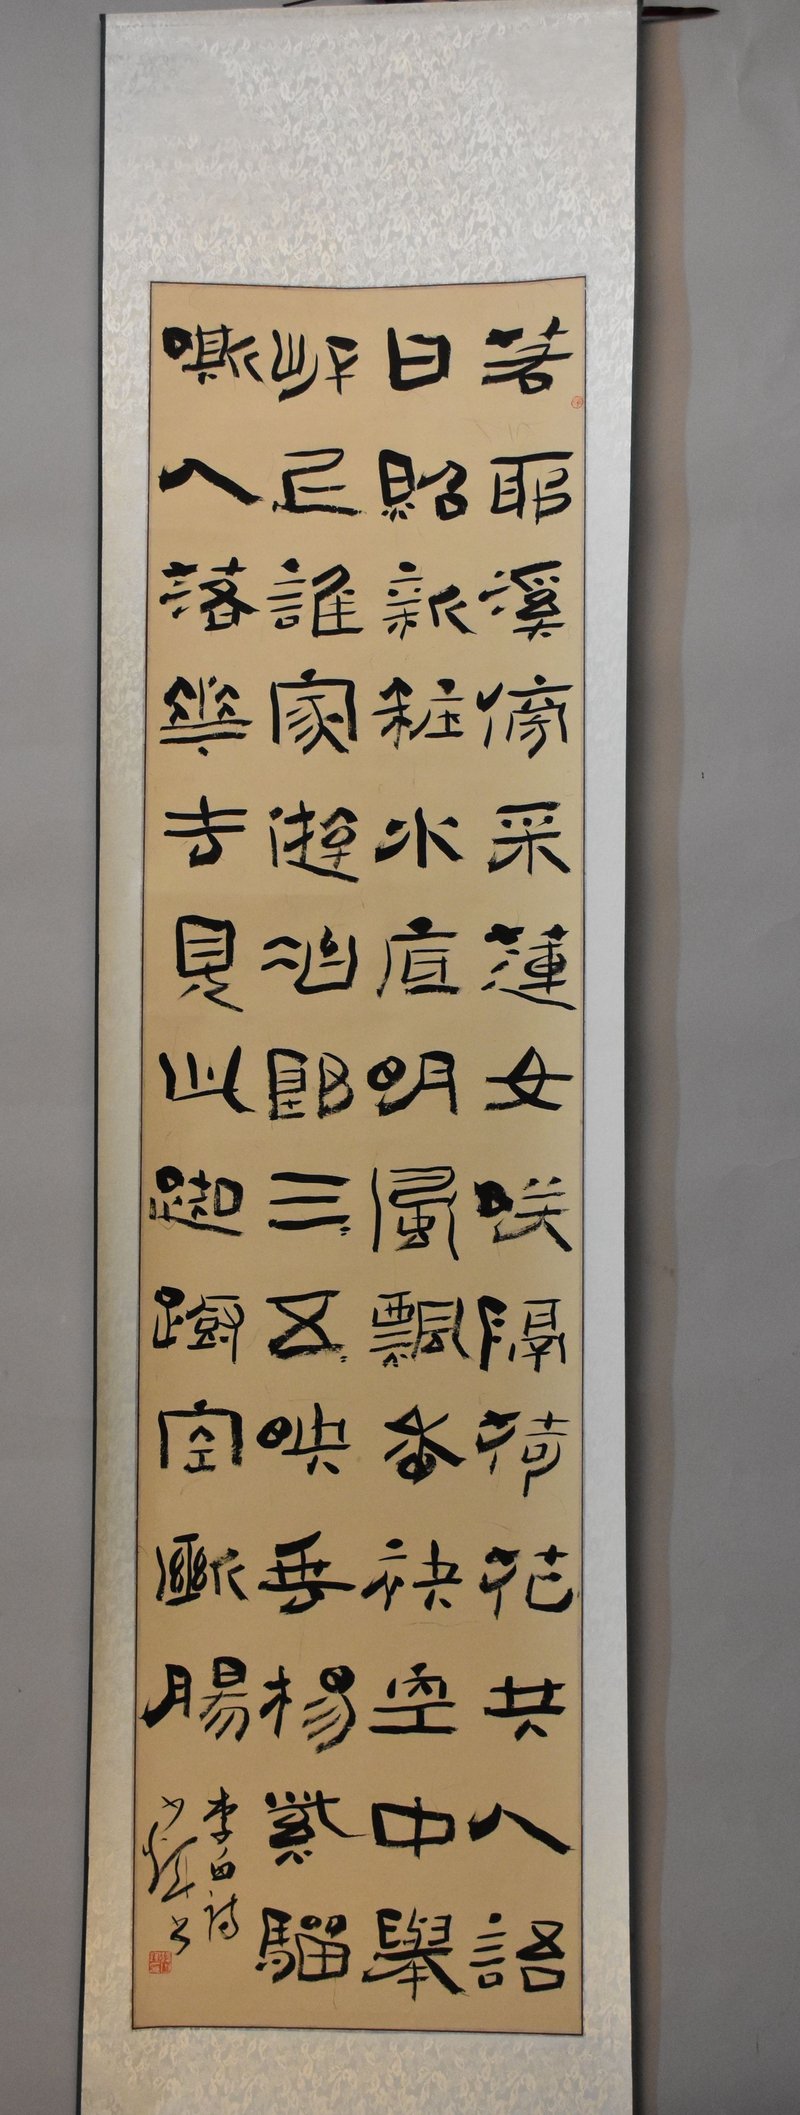 若耶溪傍采蓮女咲隔荷花共人語
日照新粧水底明風飄香袂空中舉
岸上誰家遊冶郎三三五五映垂楊紫騮
嘶入落花去見此踟躕空斷腸
李白詩